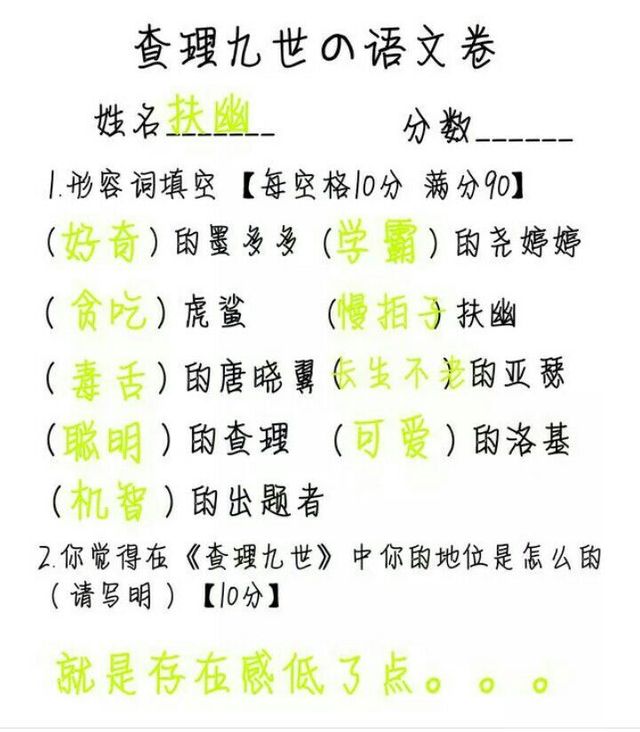 查理九世の语文卷
姓名扶幽_______ 分数______
1.形容词填空【每空格10分 满分90】
(好奇)的墨多多 (学霸)的尧婷婷
(贪吃)虎鲨 (慢拍子)扶幽
(毒舌)的唐晓翼 (长生不老)的亚瑟
(聪明)的查理 (可爱)的洛基
(机智)的出题者
2.你觉得在《查理九世》中你的地位是怎么的
(请写明)【10分】
就是存在感低了点。。。